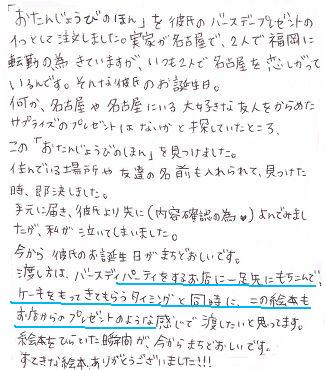 「おたんじょうびのほん」を彼氏のバースデープレゼントの
1つとして注文しました。実家が名古屋で、2人で福岡に
転勤の為きていますが、いつも2人で名古屋を恋しがって
いるんです。そんな彼氏のお誕生日。
何か、名古屋や名古屋にいる大好きな友人をからめた
サプライズのプレゼントはないかと探していたところ、
この「おたんじょうびのほん」を見つけました。
住んでいる場所や友達の名前も入れられて、見つけた
時、即決しました。
手元に届き、彼氏より先に(内容確認の為♥)よんでみまし
たが、私が泣いてしまいました。
今から彼氏のお誕生日がまちどおしいです。
渡し方は、バースデーパーティをするお店に一足先にもちこんで、
ケーキをもってきてもらうタイミングと同時に、この絵本も
お店からのプレゼントのような感じで渡したいと思ってます。
絵本をひらいた瞬間が今からまちどおしいです。
すてきな絵本、ありがとうございました!!!